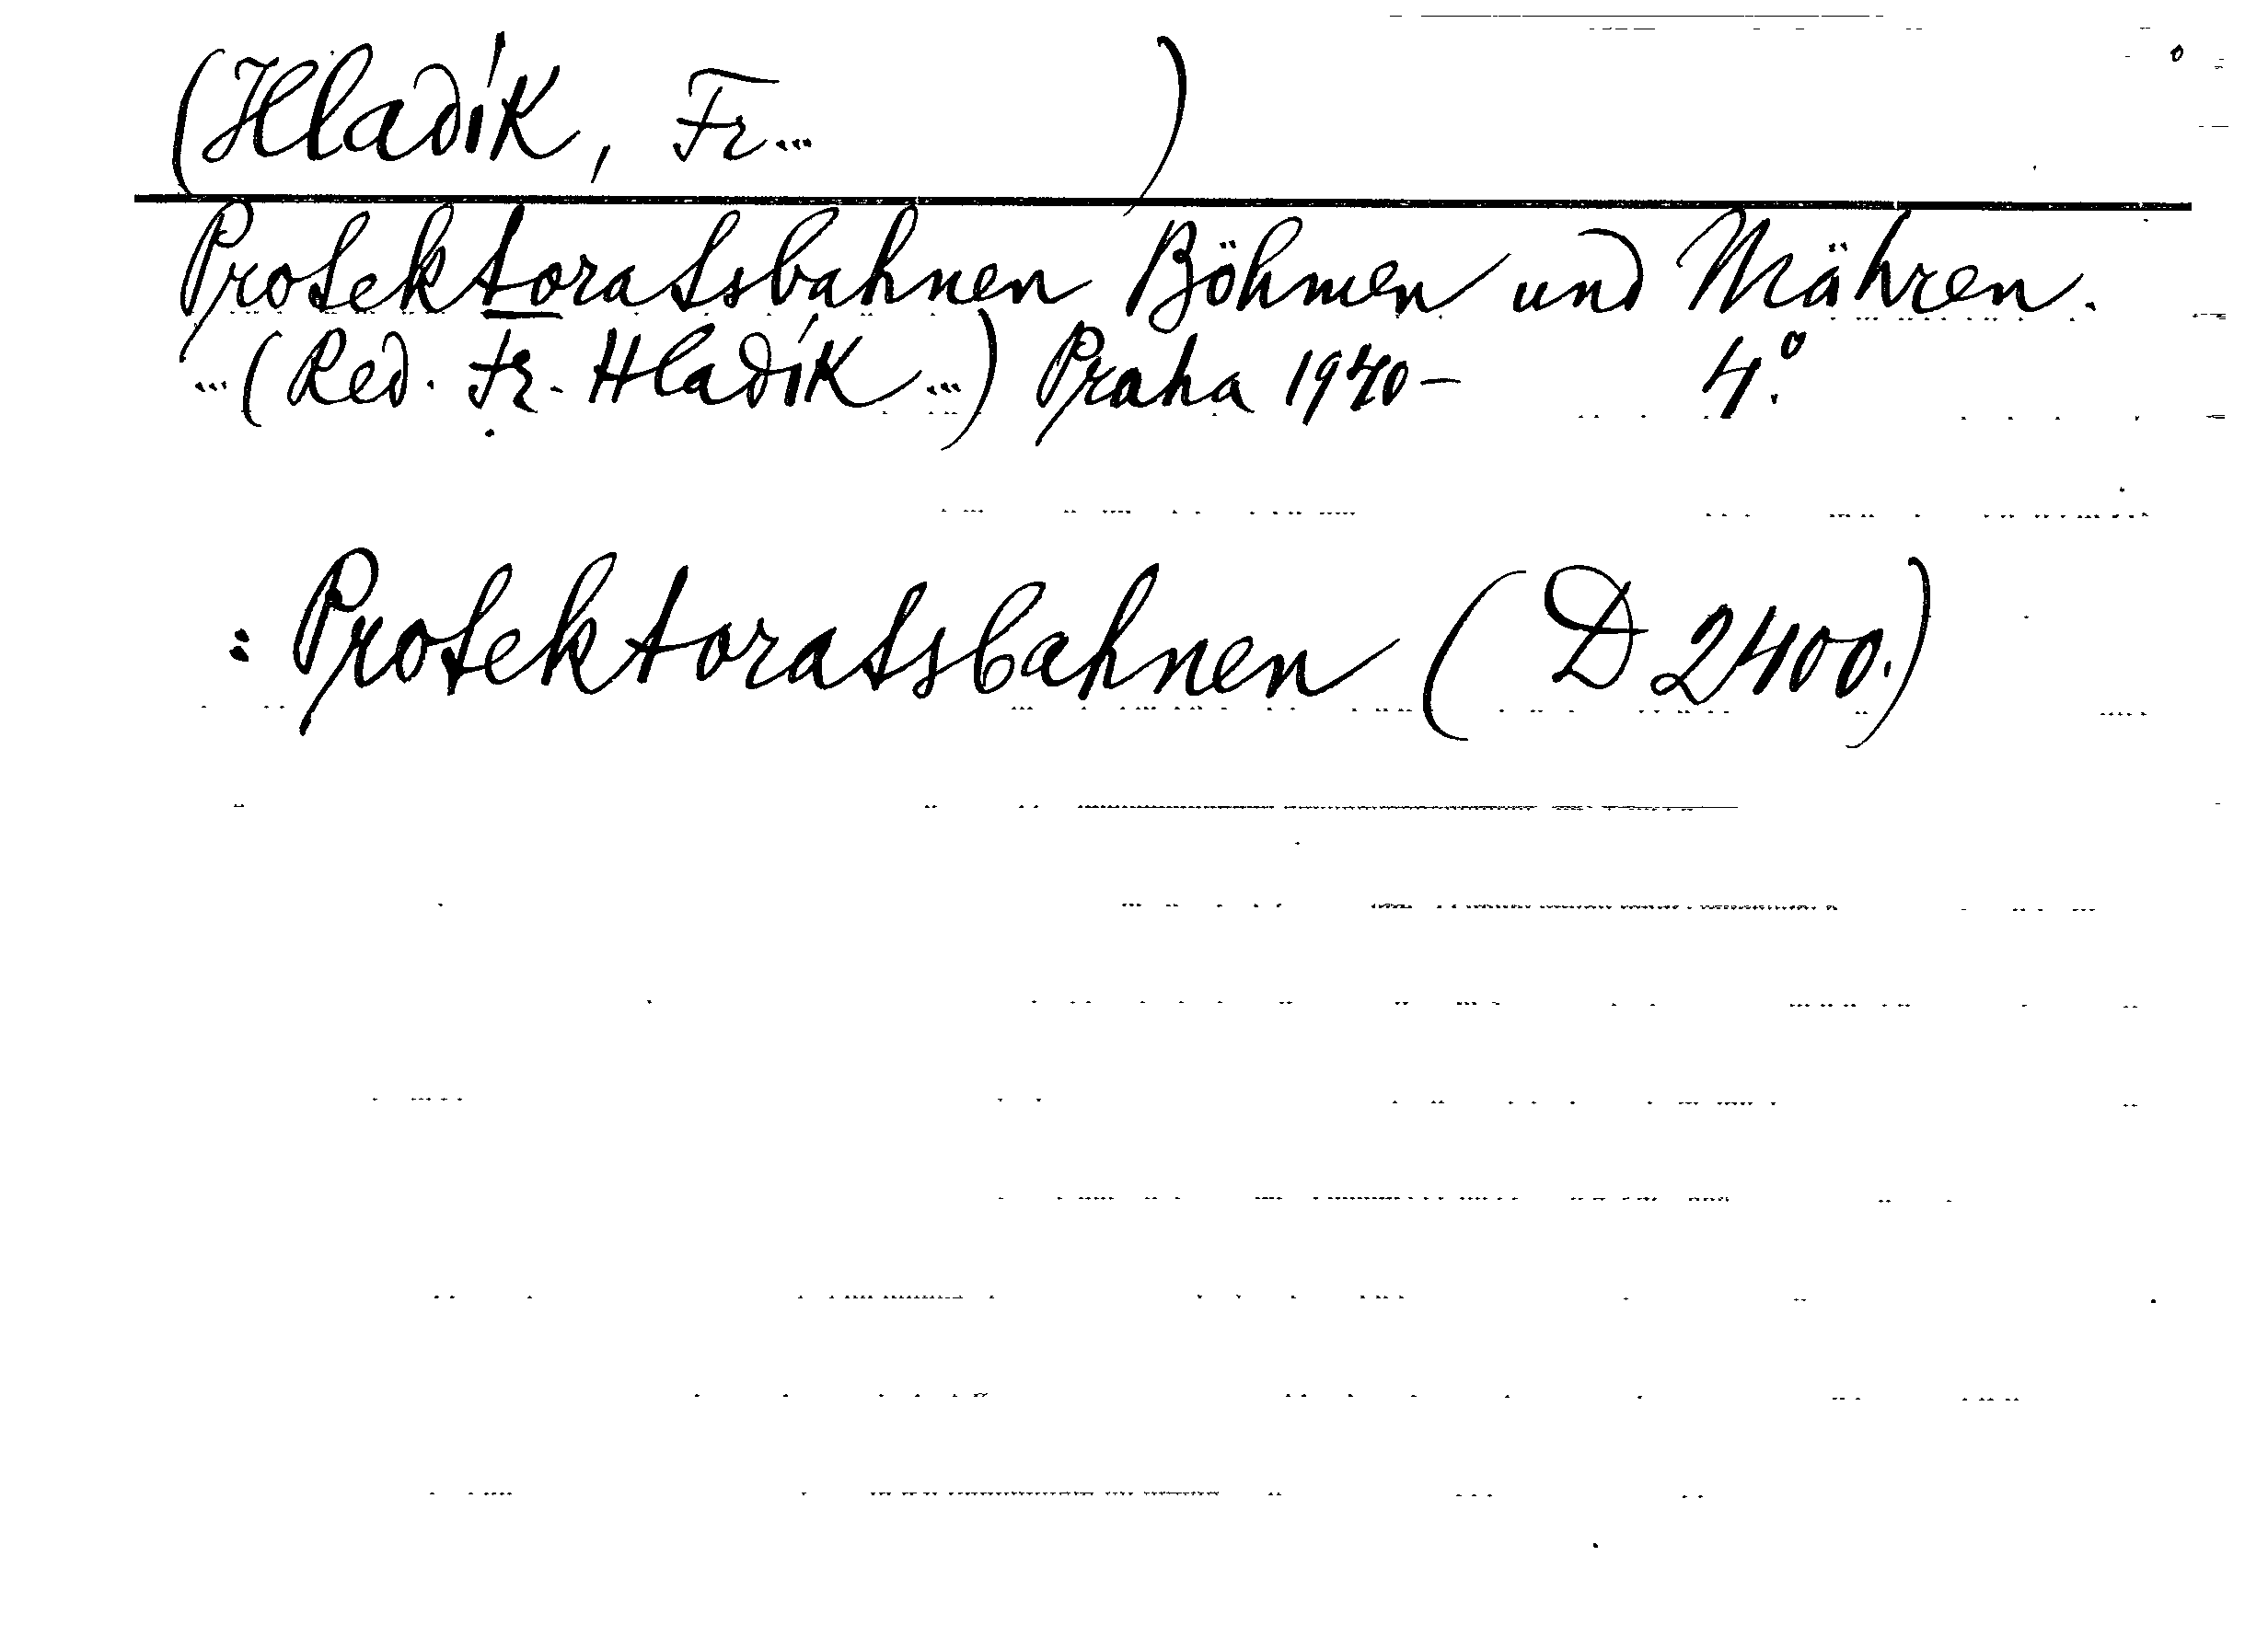 (Hladík, Fr... )
Protektoratsbahnen Böhmen und Mähren.
...(Red. Fr. Hladík...) Praha 1940- 4.°
: Protektoratsbahnen (D 2400.)